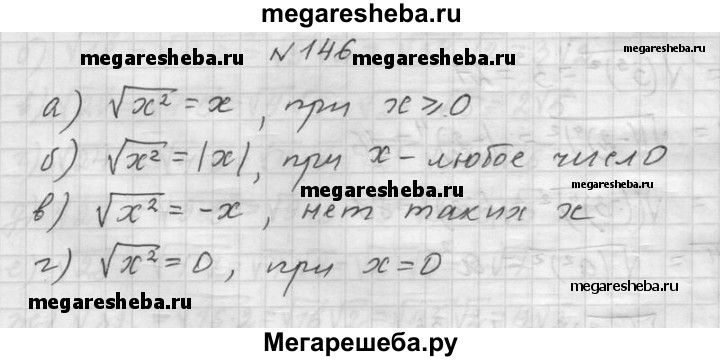 megaresheba.ru
megaresheba.ru
N 146
megaresheba.ru
megaresheba.ru
а) √x² = x, при x ⩾ 0
б) √x² = |x|, при x - любое число
megaresheba.ru
megaresheba.ru
в) √x² = -x, нет таких x
г) √x² = 0, при x = 0
megaresheba.ru
megaresheba.ru
Мегарешеба.ру